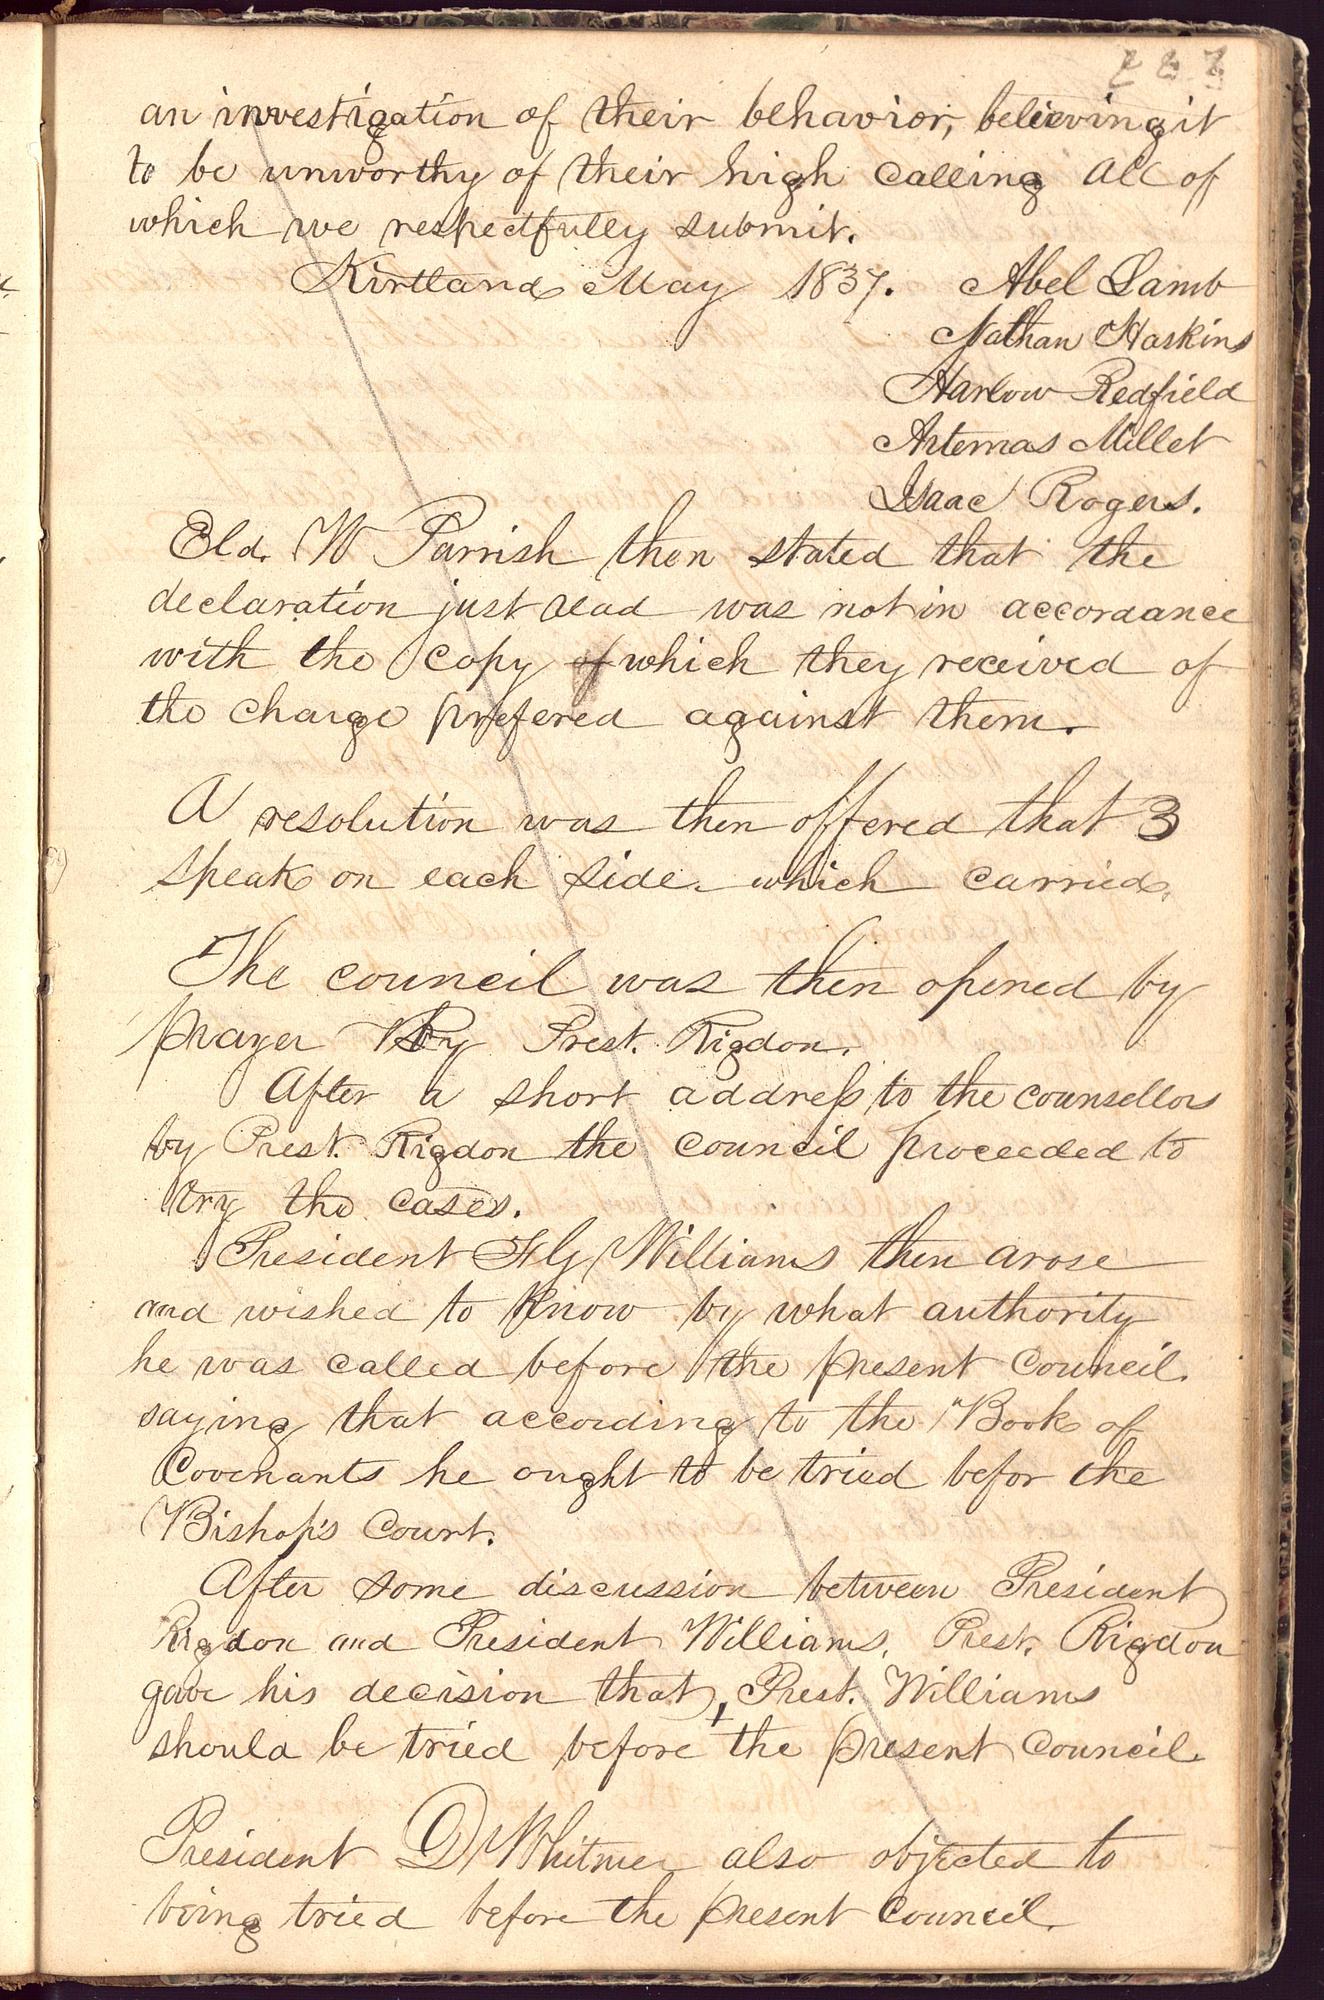 an investigation of their behavior, believing it
to be unworthy of their high calling all of
which we respectfully submit.
Kirtland May 1837. Abel Lamb
Nathan Haskins
Harlow Redfield
Artemas Millet
Isaac Rogers.
Eld. W Parrish then stated that the
declaration just read was not in accordance
with the copy of which they received of
the charge prefered against them.
A resolution was then offered that 3
speak on each side. which carried.
The council was then opened by
prayer By Prest. Rigdon.
After a short address to the counsellors
by Prest. Rigdon the council proceeded to
try the cases.
President F G Williams then arose
and wished to know by what authority
he was called before the present Council.
saying that according to the Book of
Covenants he ought to be tried befor the
Bishop's Court.
After some discussion between President
Rigdon and President Williams, Prest. Rigdon
gave his decision that, Prest. Williams
should be tried before the present Council.
President D Whitmer also objected to
being tried before the present Council.